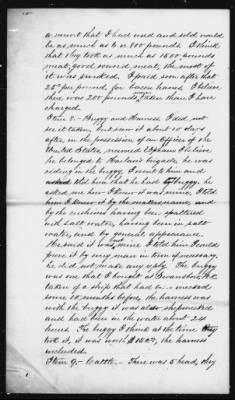 amount that I they used and sold would
be as much as 6 or 800 pounds. I think
that they took as much as 1500 pounds
meat, good sound meat, the most of
it was smoked. I paid soon after that
25¢ per pound, for bacon hams. I believe
there was 200 pounds taken than I have
charged.
Item 8.- Buggy and Harness, I did not
see it taken, but saw it about 10 days
after, in the possession of an Officer of the
United States, named
he belonged to Harland brigade, he was
riding in the buggy, I went to him and
told him that he had buggy, he
asked me how I knew it was mine, I told
him I knew it by the makers name, and
by the cushions having been spattered
with salt water, having been in salt
water, and by general appearance.
He said it was mine but I told him I could
prove it by every man in town if necessary,
he did not make any reply. The buggy
was one that I bought at
taken of a ship that had been wrecked
some 18 months before, the harness was
with the buggy it was also shipwrecked
and had been in the water about 24
hours. The buggy I think at the time they
took it, it was worth $150.00, the harness
included.
Item 9.- Cattle.- There was 5 head, they